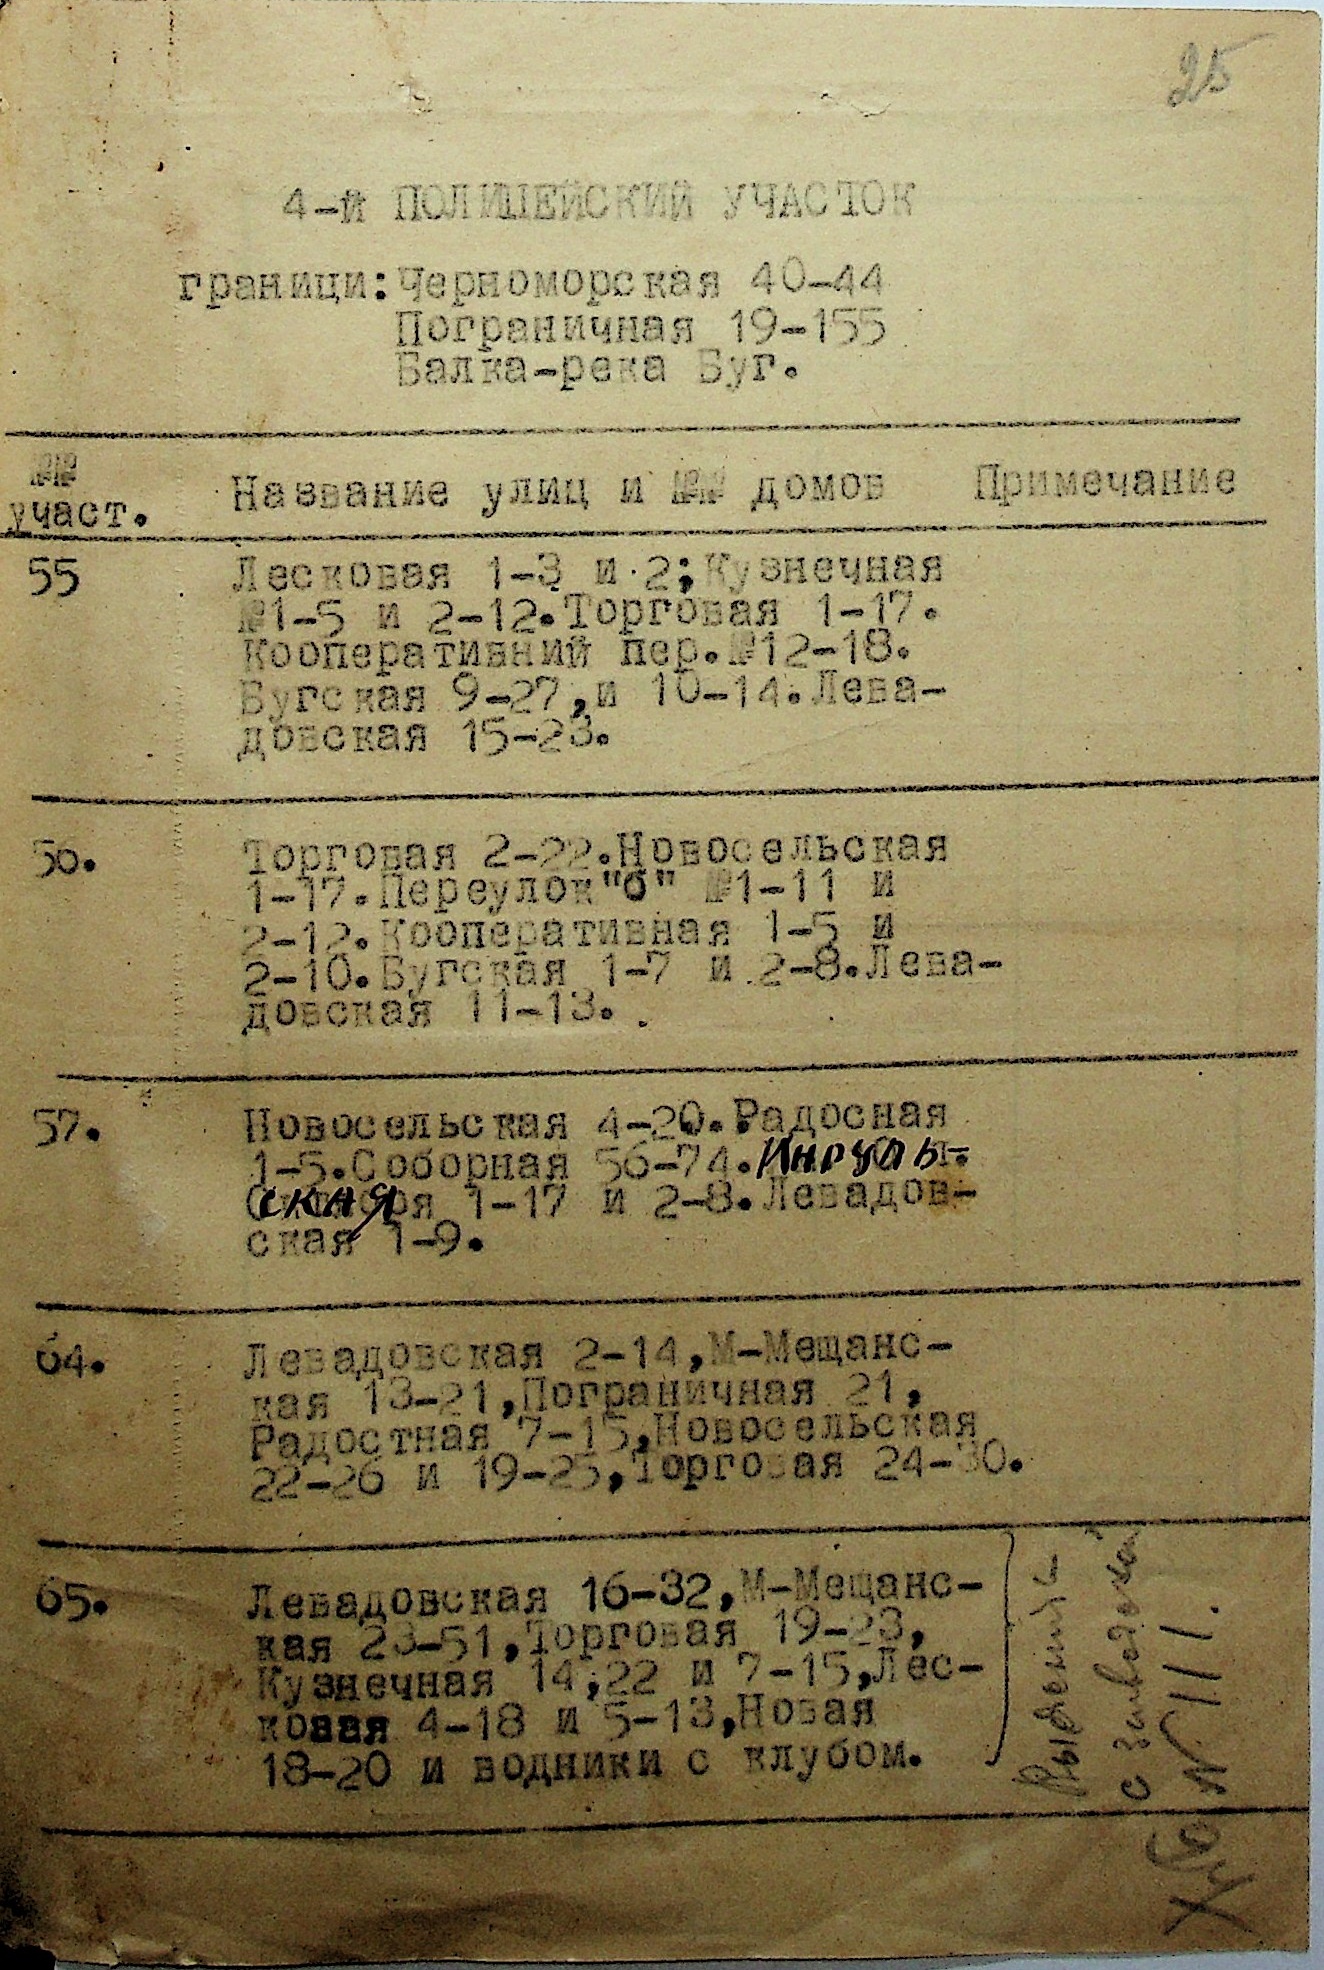 25
4-й ПОЛИЦЕЙСКИЙ УЧАСТОК
граници: Черноморская 40-44
Пограничная 19-155
Балка-река Буг.
№№
участ.
Название улиц и №№ домов
Примечание
55
Лесковая 1-3 и 2; Кузнечная
№1-5 и 2-12. Торговая 1-17.
Кооперативний пер. №12-18.
Бугская 9-27, и 10-14. Лева-
довская 15-23.
56.
Торговая 2-22. Новосельская
1-17. Переулок "б" №1-11 и
2-12. Кооперативная 1-5 и
2-10. Бугская 1-7 и 2-8. Лева-
довская 11-13.
57.
Новосельская 4-20. Радосная
1-5. Соборная 56-74. Ингуль-
ская 1-17 и 2-8. Левадов-
ская 1-9.
64.
Левадовская 2-14, М-Мещанс-
кая 13-21, Пограничная 21,
Радостная 7-15, Новосельская
22-26 и 19-25, Торговая 24-30.
65.
Левадовская 16-32, М-Мещанс-
кая 23-51, Торговая 19-23,
Кузнечная 14,22 и 7-15, Лес-
ковая 4-18 и 5-13, Новая
18-20 и водники с клубом.
с